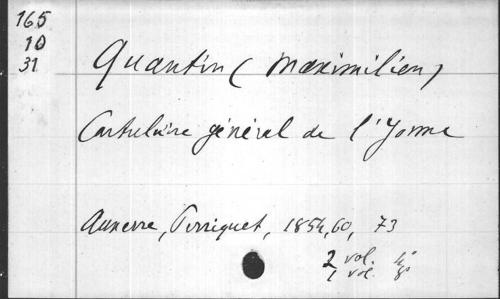 165
10
31
Quantin (Maximilien)
Cartulaire général de l'Yonne
Auxerre, Perriquet, 1854, 60, 73
2 vol. 4°
1 vol. 8°